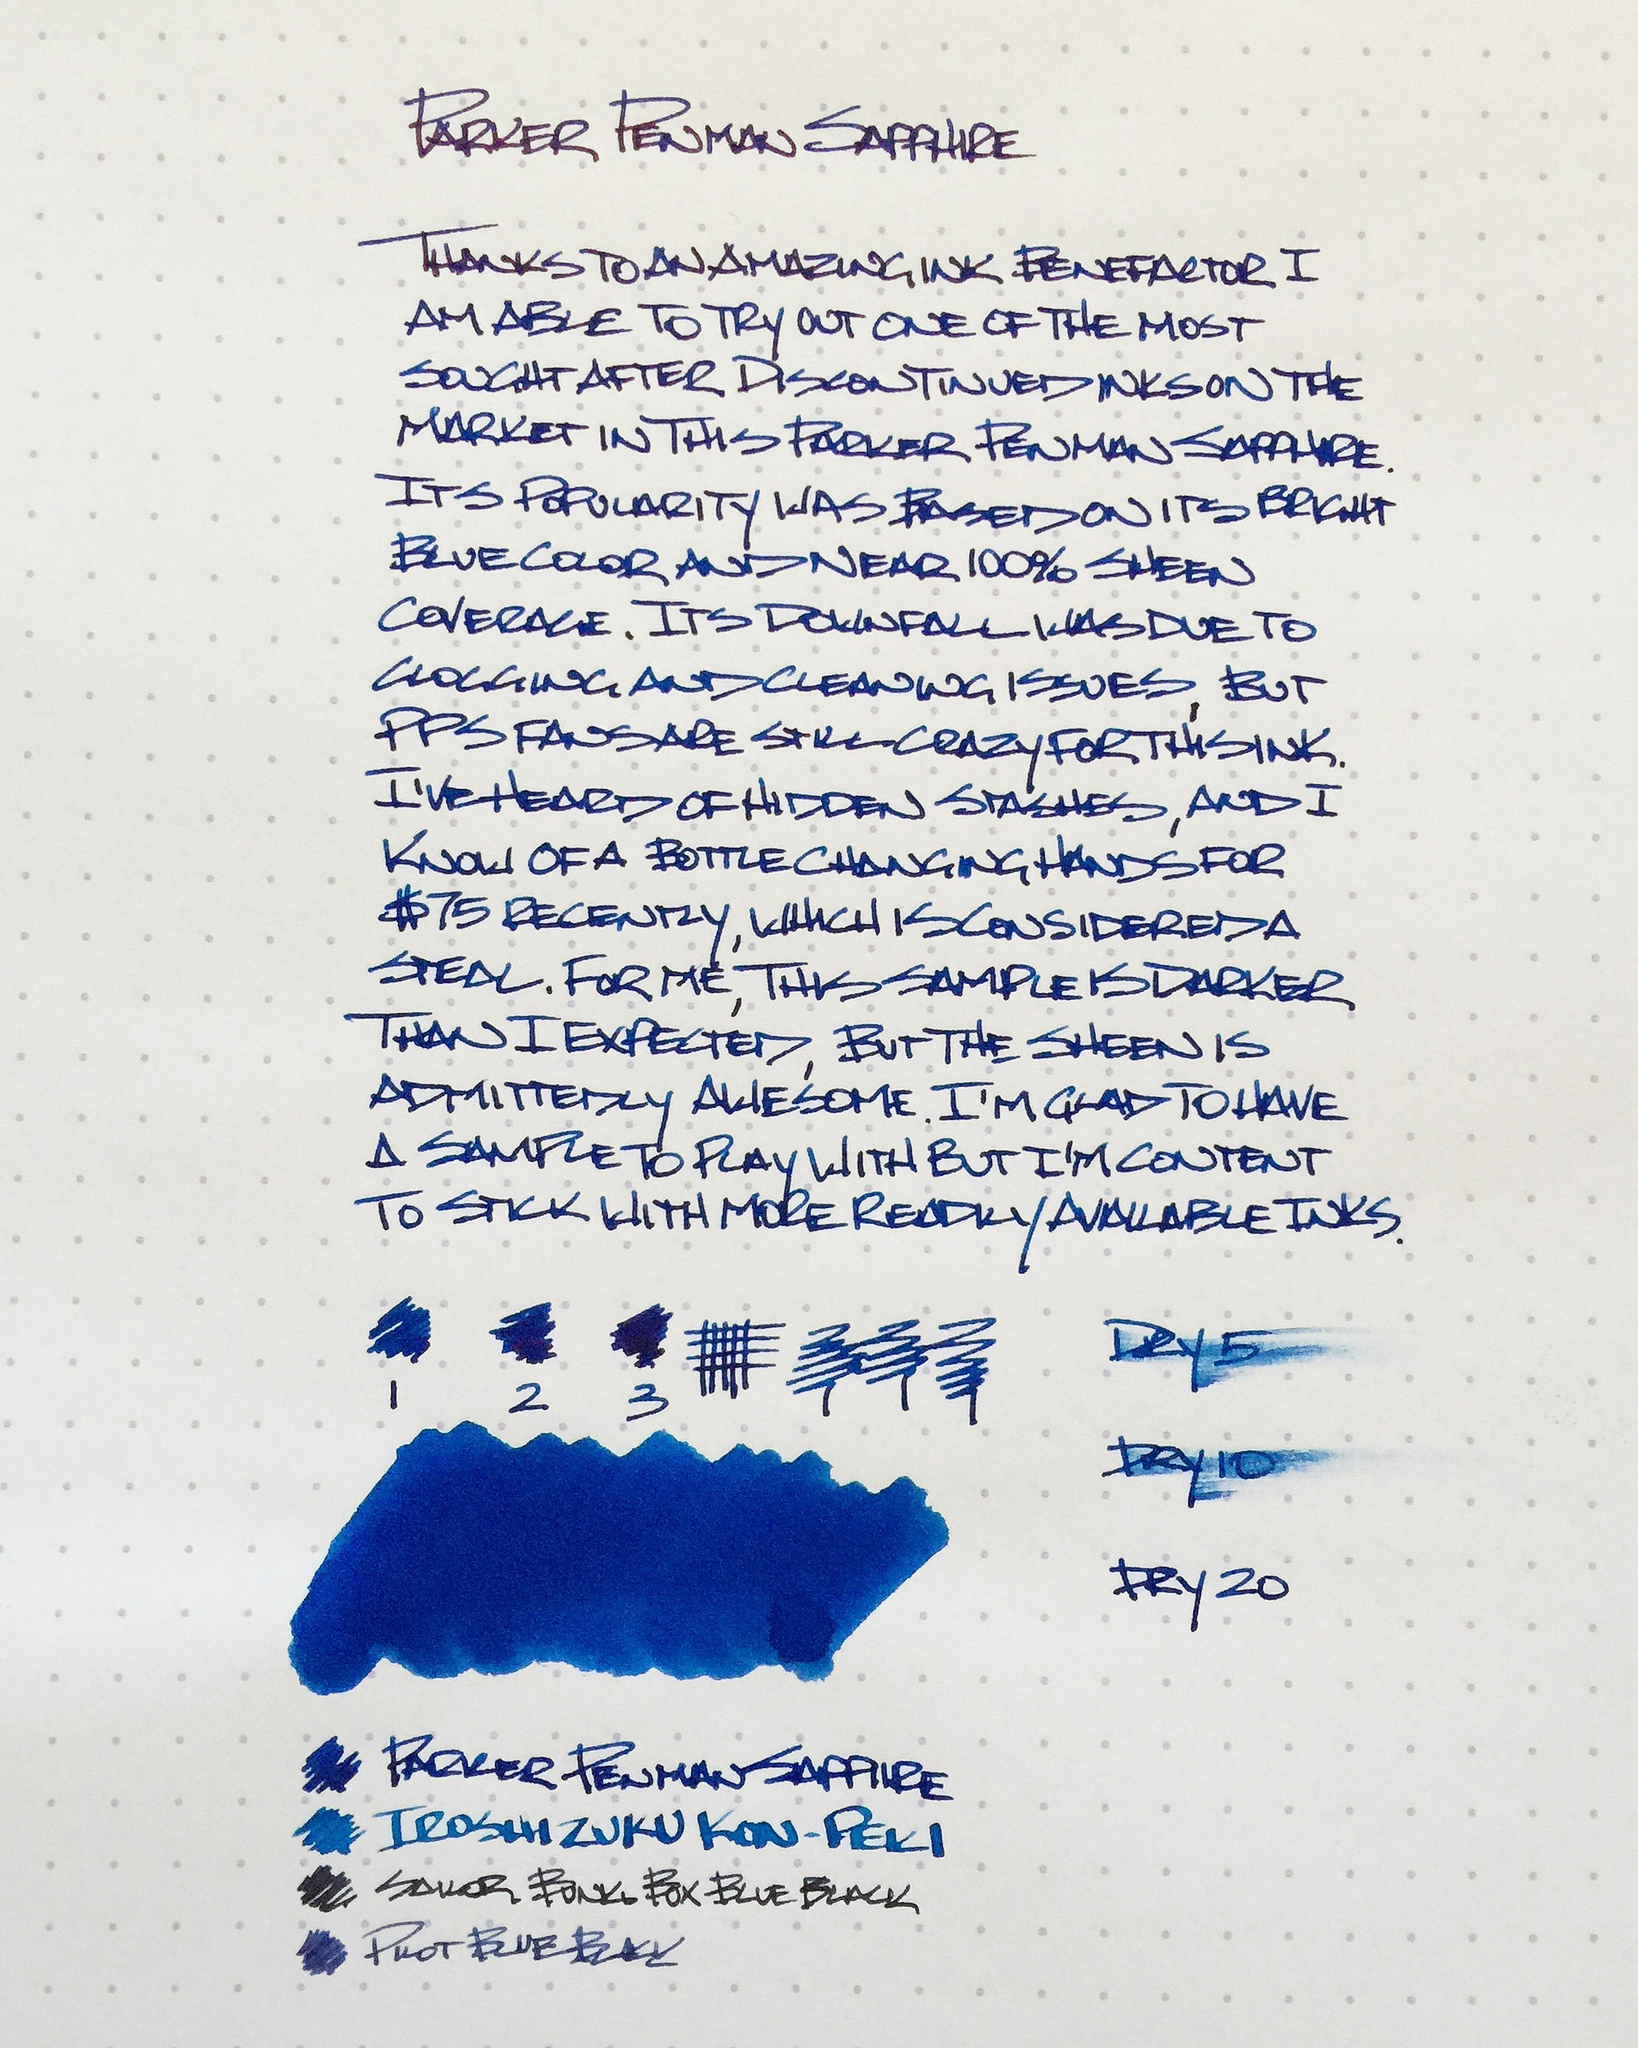 PARKER PENMAN SAPPHIRE
THANKS TO AN AMAZING INK BENEFACTOR I
AM ABLE TO TRY OUT ONE OF THE MOST
SOUGHT AFTER DISCONTINUED INKS ON THE
MARKET IN THIS PARKER PENMAN SAPPHIRE.
ITS POPULARITY WAS BASED ON ITS BRIGHT
BLUE COLOR AND NEAR 100% SHEEN
COVERAGE. ITS DOWNFALL WAS DUE TO
CLOGGING AND CLEANING ISSUES, BUT
PPS FANS ARE STILL CRAZY FOR THIS INK.
I'VE HEARD OF HIDDEN STASHES, AND I
KNOW OF A BOTTLE CHANGING HANDS FOR
$75 RECENTLY, WHICH IS CONSIDERED A
STEAL. FOR ME, THIS SAMPLE IS DARKER
THAN I EXPECTED, BUT THE SHEEN IS
ADMITTEDLY AWESOME. I'M GLAD TO HAVE
A SAMPLE TO PLAY WITH BUT I'M CONTENT
TO STICK WITH MORE READILY AVAILABLE INKS.
1 2 3
DRY 5
DRY 10
DRY 20
PARKER PENMAN SAPPHIRE
IROSHIZUKU KON-PEKI
SAILOR BUNG BOX BLUE BLACK
PILOT BLUE BLACK